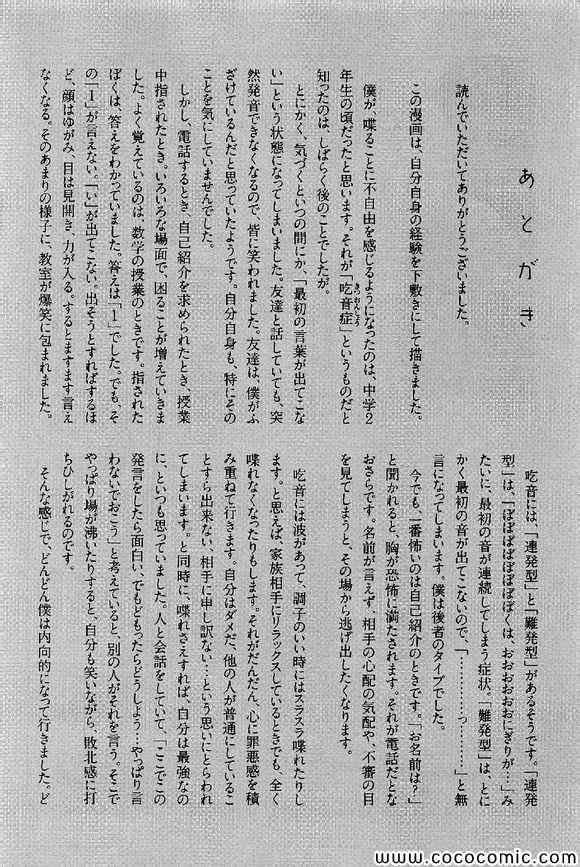 www.cococomic.com
あとがき
読んでいただいてありがとうございました。
この漫画は、自分自身の経験を下敷きにして描きました。
僕が、喋ることに不自由を感じるようになったのは、中学2
年生の頃だったと思います。それが「吃音症」というものだと
きつおんしょう
知ったのは、しばらく後のことでしたが。
とにかく、気づくといつの間にか、「最初の言葉が出てこな
い」という状態になってしまいました。友達と話していても、突
然発音できなくなるので、皆に笑われました。友達は、僕がふ
ざけているんだと思っていたようです。自分自身も、特にその
ことを気にしていませんでした。
しかし、電話するとき、自己紹介を求められたとき、授業
中指されたとき。いろいろな場面で、困ることが増えていきま
した。よく覚えているのは、数学の授業のときです。指された
ぼくは、答えをわかっていました。答えは「1」でした。でも、そ
の「1」が言えない。「い」が出てこない。出そうとすればするほ
ど、顔はゆがみ、目は見開き、力が入る。するとますます言え
なくなる。そのあまりの様子に、教室が爆笑に包まれました。
吃音には、「連発型」と「難発型」があるそうです。「連発
型」は、「ぼぼぼぼぼぼぼぼくは、おおおおおおにぎりが…」み
たいに、最初の音が連続してしまう症状。「難発型」は、とに
かく最初の音が出てこないので、「…………っ……」と無
言になってしまいます。僕は後者のタイプでした。
今でも、一番怖いのは自己紹介のときです。「お名前は?」
と聞かれると、胸が恐怖に満たされます。それが電話だとな
おさらです。名前が言えず、相手の心配の気配や、不審の目
を見てしまうと、その場から逃げ出したくなります。
吃音には波があって、調子のいい時にはスラスラ喋れたりし
ます。と思えば、家族相手にリラックスしているときでも、全く
喋れなくなったりもします。それがだんだん、心に罪悪感を積
み重ねて行きます。自分はダメだ、他の人が普通にしているこ
とすら出来ない、相手に申し訳ない…という思いにとらわれ
てしまいます。と同時に、喋れさえすれば、自分は最強なの
に、といつも思っていました。人と会話をしていて、「ここでこの
発言をしたら面白い、でもどもったらどうしよう…やっぱり言
わないでおこう」と考えていると、別の人がそれを言う。そこで
やっぱり場が沸いたりすると、自分も笑いながら、敗北感に打
ちひしがれるのです。
そんな感じで、どんどん僕は内向的になって行きました。ど
www.cococomic.com